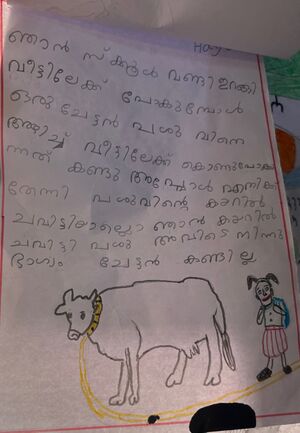 Hay
ഞാൻ സ്കൂൾ വണ്ടി ഇറങ്ങി
വീട്ടിലേക്ക് പോകുമ്പോൾ
ഒരു ചേട്ടൻ പശു വിനെ
അഴിച്ച് വീട്ടിലേക്ക് കൊണ്ടുപോകു
ന്നത് കണ്ടു അപ്പോൾ എനിക്ക്
തോന്നി പശുവിന്റെ കയറിൽ
ചവിട്ടിയാലോ ഞാൻ കയറിൽ
ചവിട്ടി പശു അവിടെ നിന്നു
ഭാഗ്യം ചേട്ടൻ കണ്ടി ല്ല